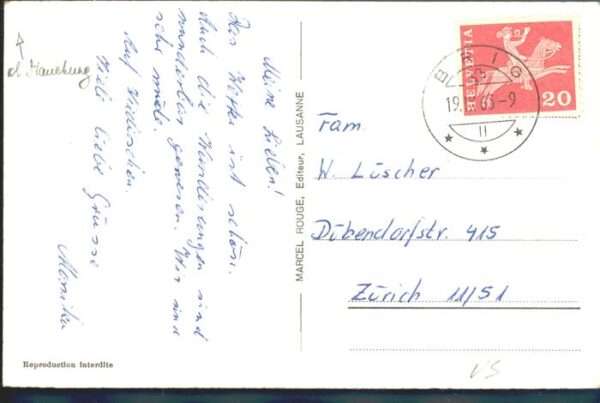 Meine Lieben!
Das Wetter ist schön.
Auch die Wanderungen sind
wunderbar gewesen. Wir sind
sehr müde.
Auf Wiedersehen.
Viele liebe Grüsse
Monika
MARCEL ROUGE, Editeur, LAUSANNE
HELVETIA
20
BRIG
19. 63-9
Fam.
W. Lüscher
Dübendorfstr. 415
Zürich 11/51
VS
Reproduction interdite